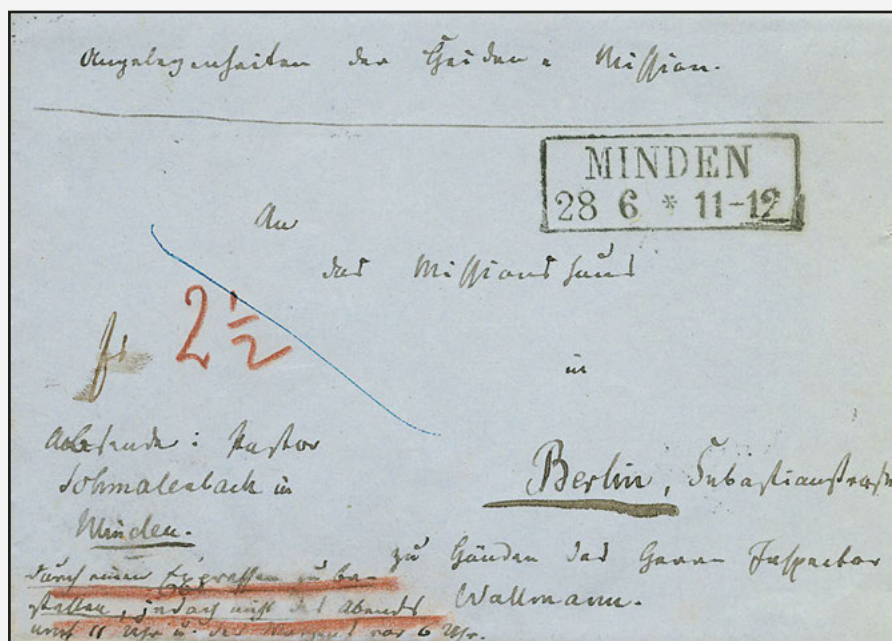 Angelegenheiten der Heiden-Mission.
MINDEN
28 6 * 11-12
An
das Missionshaus
2½
in
Absende: Pastor
Schmalenbach in
Minden.
Berlin, Sebastianstraße
zu Händen des Herrn Inspector
Wallmann.
durch einen Expressen zu be-
stellen, jedoch nicht des Abends
nach 11 Uhr u. des Morgens vor 6 Uhr.